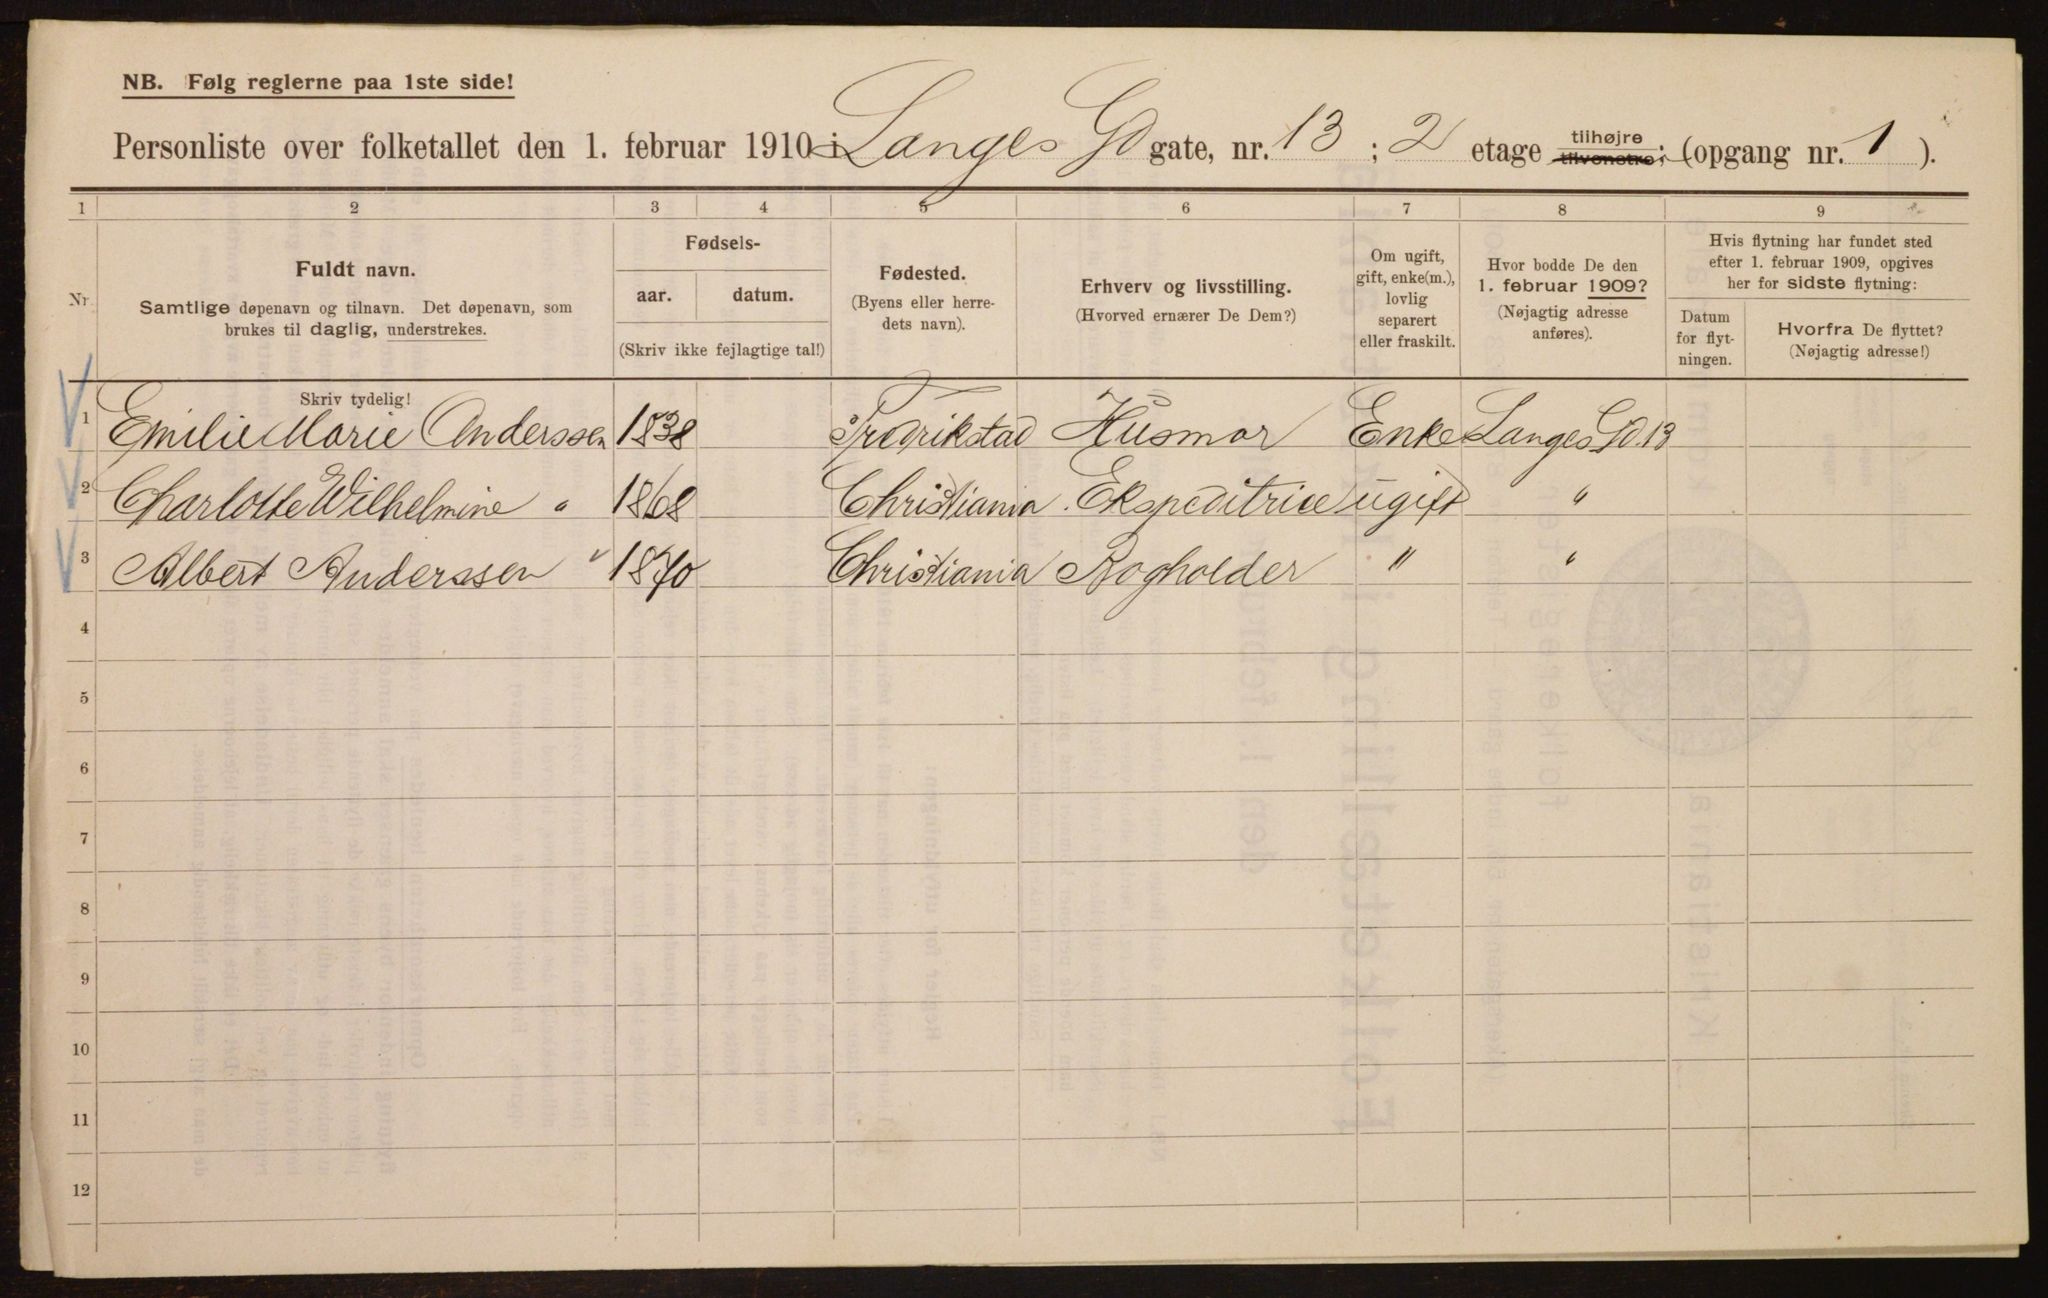 NB. Følg reglerne paa 1ste side!
Personliste over folketallet den 1. februar 1910 i Langes Gd gate, nr. 13 ; 2 etage tilhøjre tilvenstre; (opgang nr. 1 ).
1 2 3 4 5 6 7 8 9
Nr. Fuldt navn. Samtlige døpenavn og tilnavn. Det døpenavn, som brukes til daglig, understrekes.
Skriv tydelig!
Fødsels-
aar. datum.
(Skriv ikke fejlagtige tal!)
Fødested.
(Byens eller herre-
dets navn).
Erhverv og livsstilling.
(Hvorved ernærer De Dem?)
Om ugift,
gift, enke(m.),
lovlig
separert
eller fraskilt.
Hvor bodde De den
1. februar 1909?
(Nøjagtig adresse
anføres).
Hvis flytning har fundet sted
efter 1. februar 1909, opgives
her for sidste flytning:
Datum
for flyt-
ningen.
Hvorfra De flyttet?
(Nøjagtig adresse!)
1 Emilie Marie Anderssen 1838 Fredrikstad Husmor Enke Langes Gd. 13
2 Charlotte Wilhelmine " 1868 Christiania Ekspeditrice ugift "
3 Albert Anderssen " 1870 Christiania Bogholder " "
4
5
6
7
8
9
10
11
12